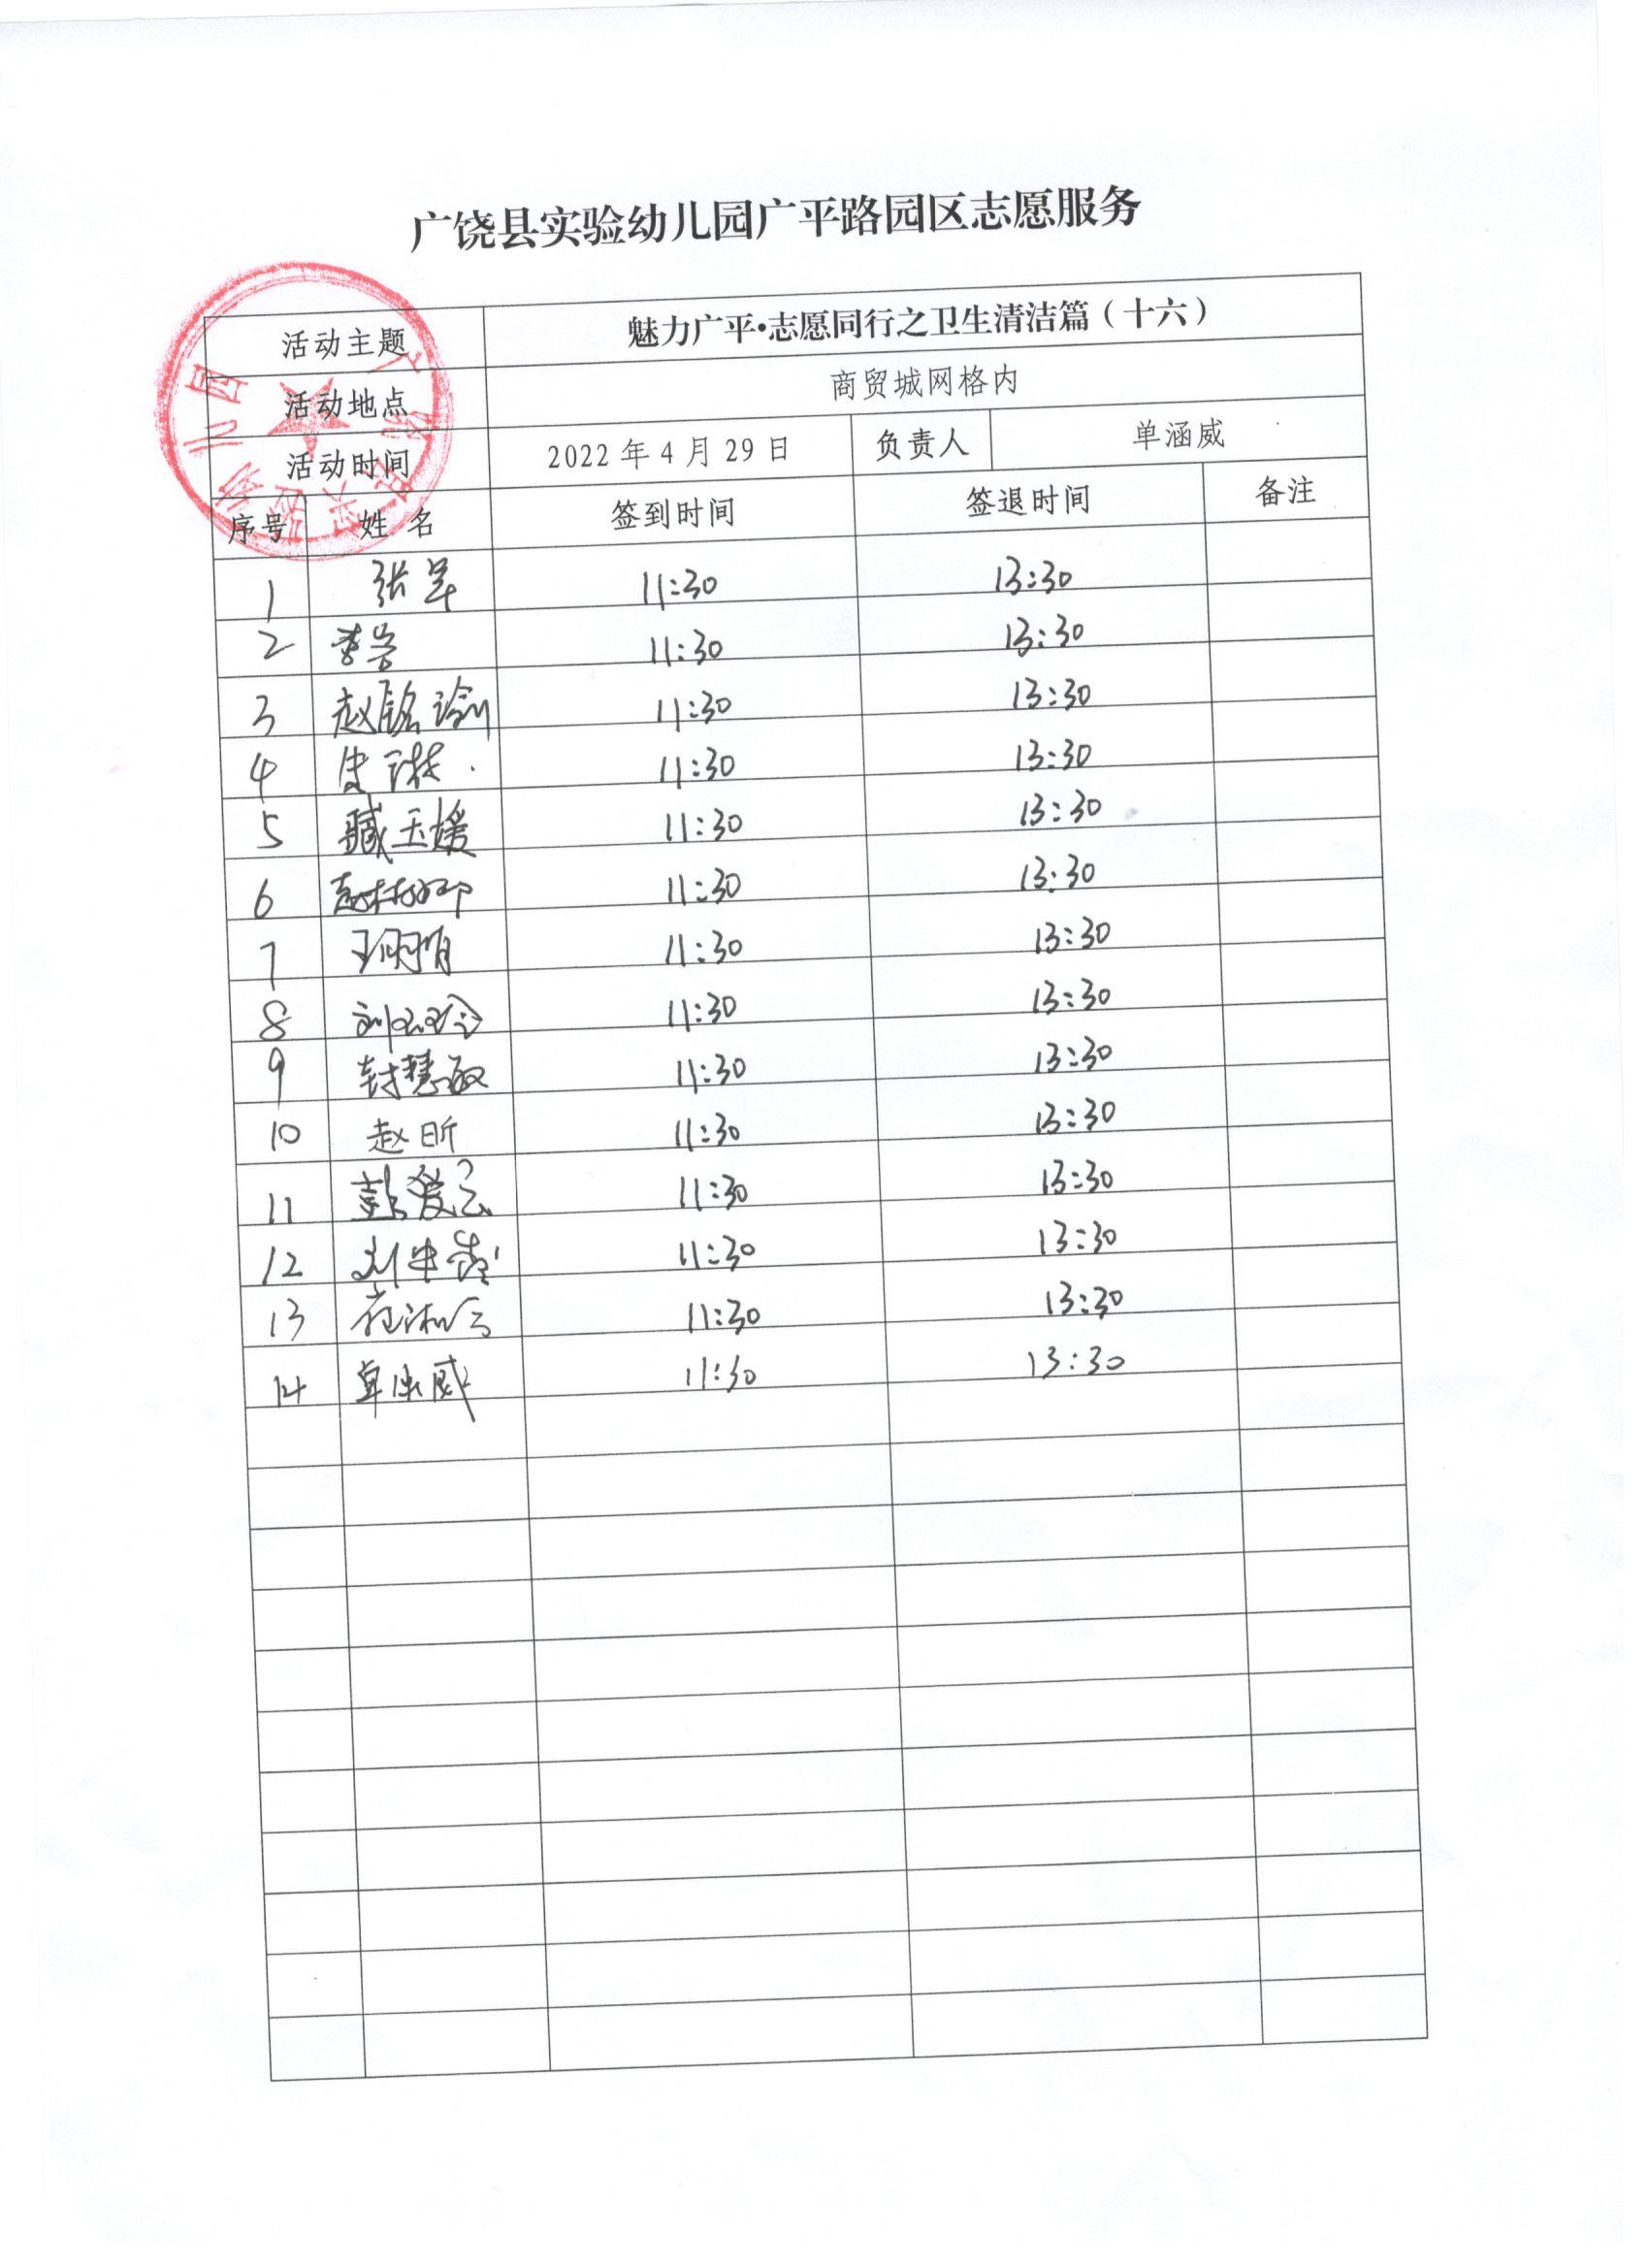 广饶县实验幼儿园广平路园区志愿服务
活动主题 魅力广平•志愿同行之卫生清洁篇（十六）
活动地点 商贸城网格内
活动时间 2022年4月29日 负责人 单涵威
序号 姓名 签到时间 签退时间 备注
1 张军 11:30 13:30
2 11:30 13:30
3 赵铭瑜 11:30 13:30
4 11:30 13:30
5 臧玉媛 11:30 13:30
6 11:30 13:30
7 王明娟 11:30 13:30
8 11:30 13:30
9 封慧敏 11:30 13:30
10 赵昕 11:30 13:30
11 彭爱云 11:30 13:30
12 11:30 13:30
13 11:30 13:30
14 单涵威 11:30 13:30